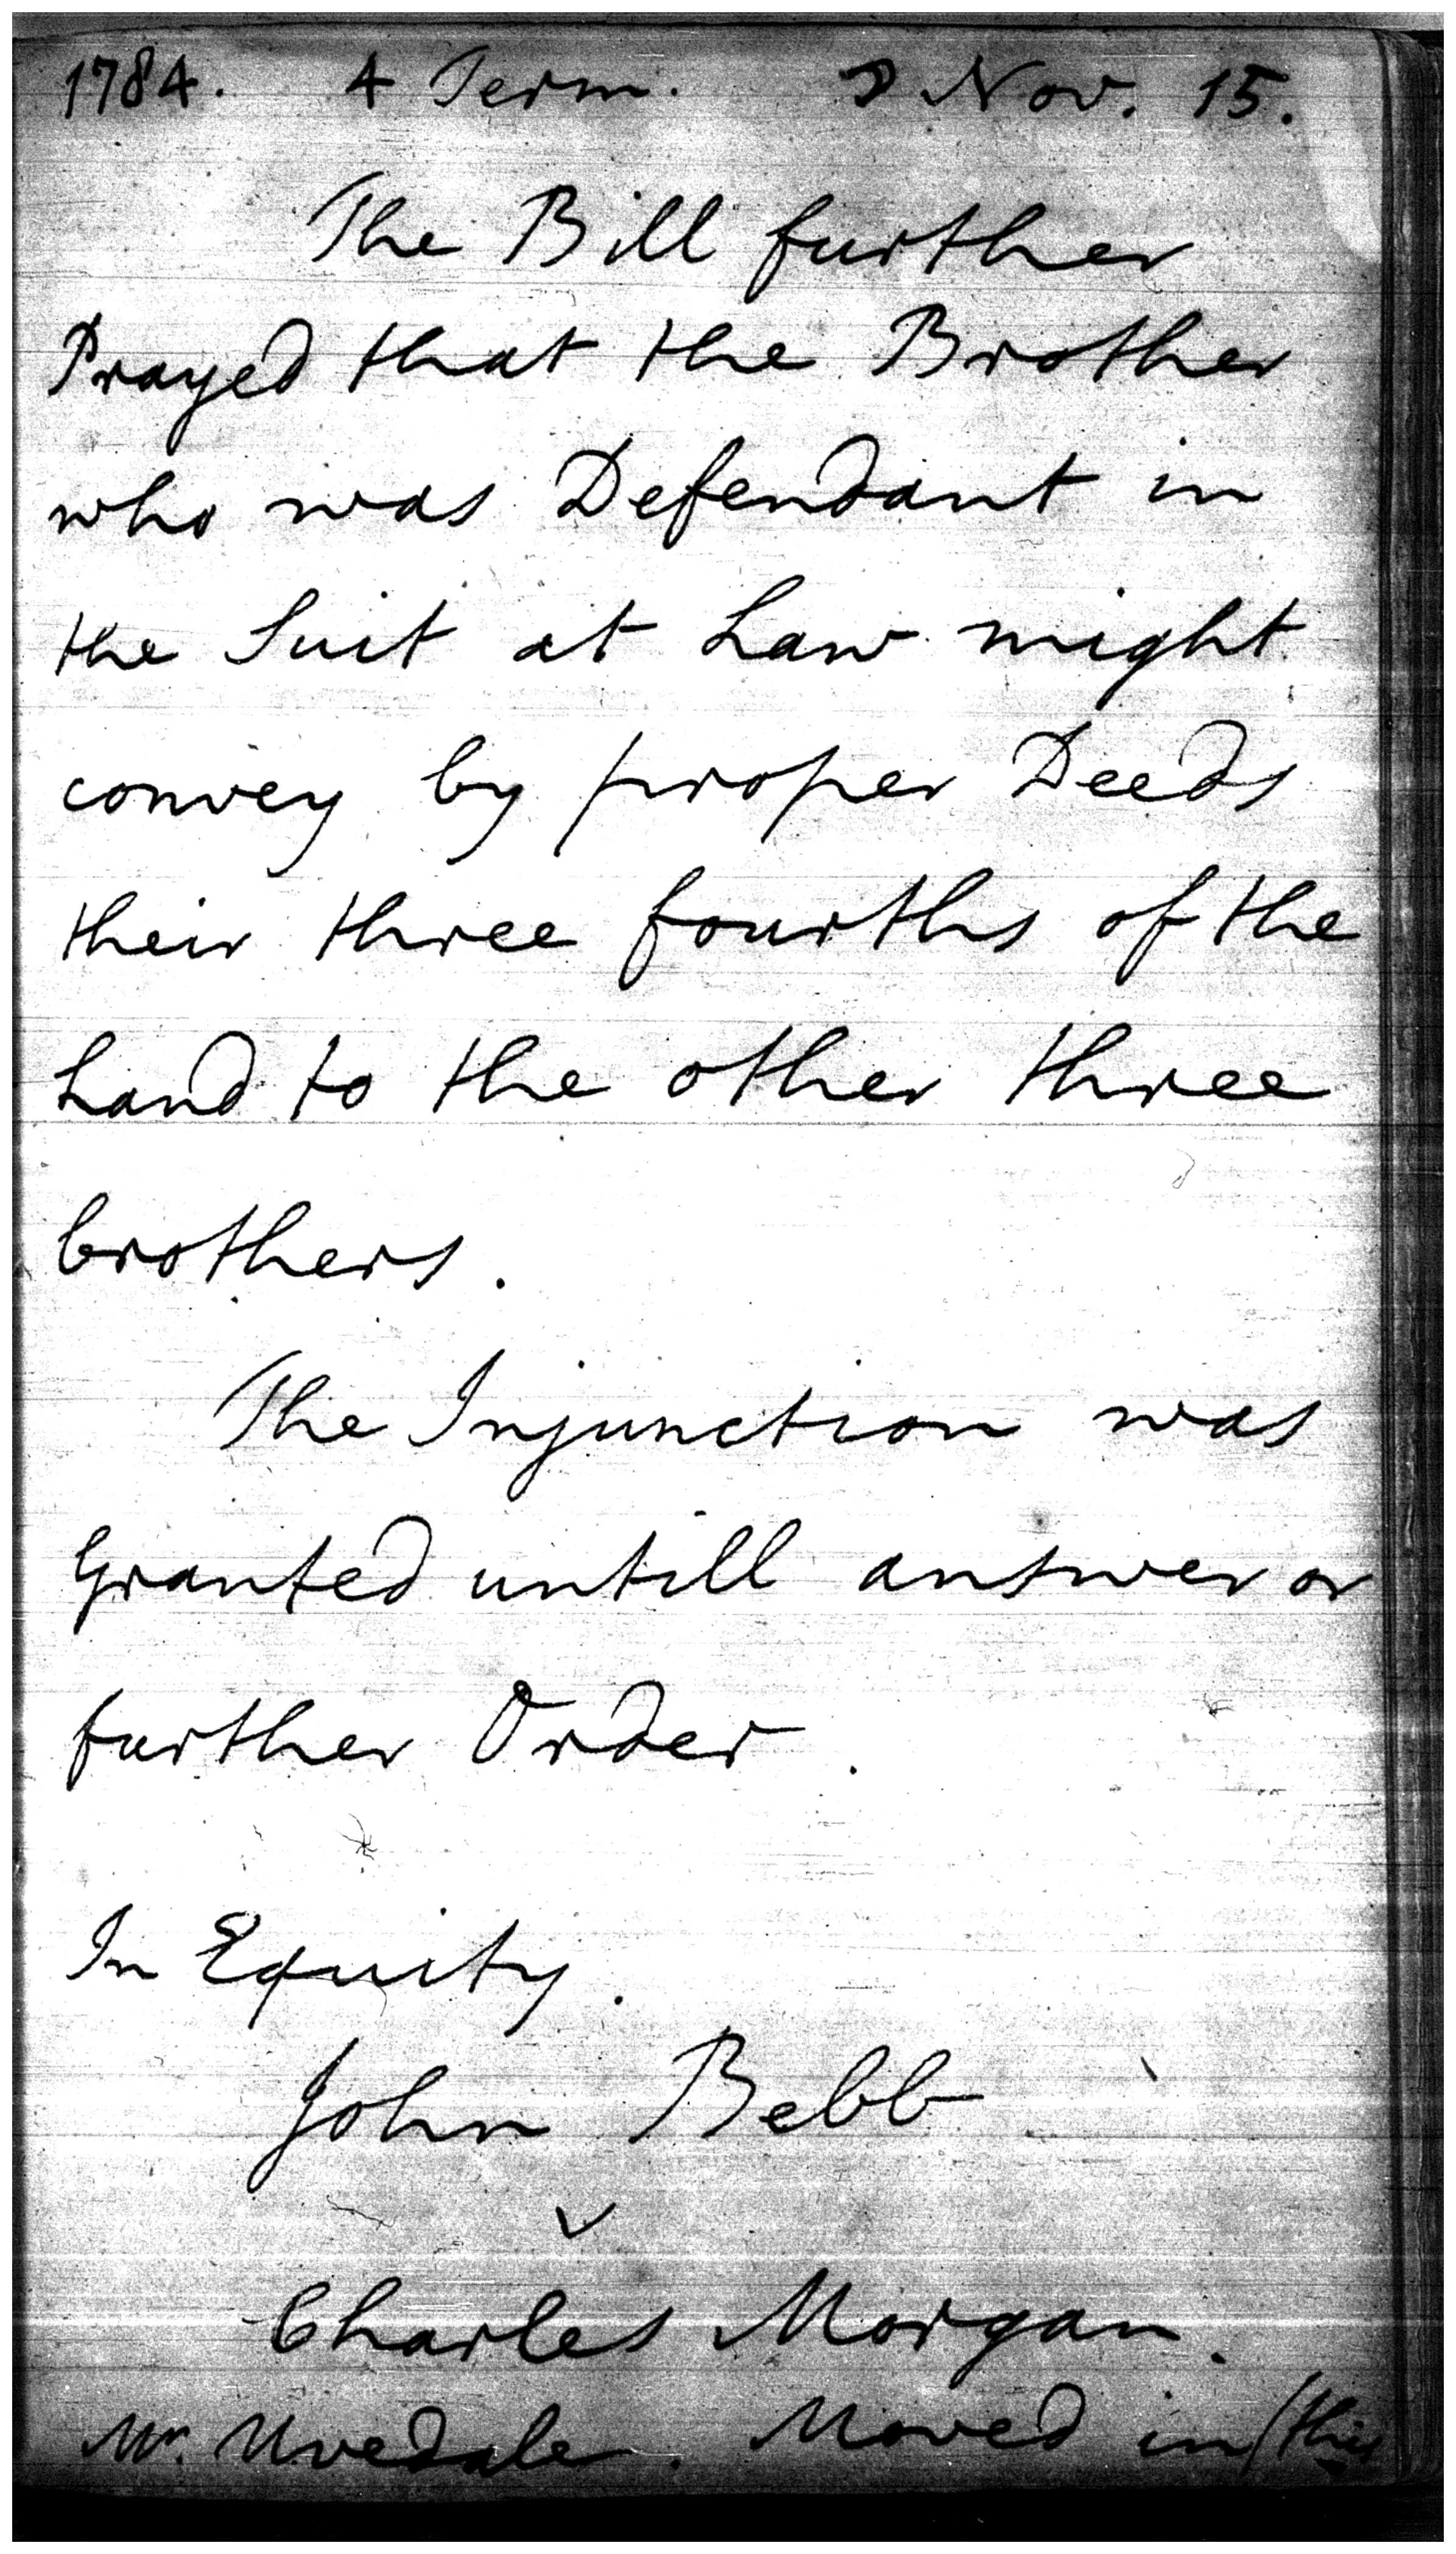 1784. 4 Term. ☽ Nov. 15.
The Bill further
Prayed that the Brother
who was Defendant in
the Suit at Law might
convey by proper Deeds
their three fourths of the
Land to the other three
brothers.
The Injunction was
Granted untill answer or
further Order.
In Equity.
John Bebb
v
Charles Morgan.
Mr. Uvedale. Moved in/this